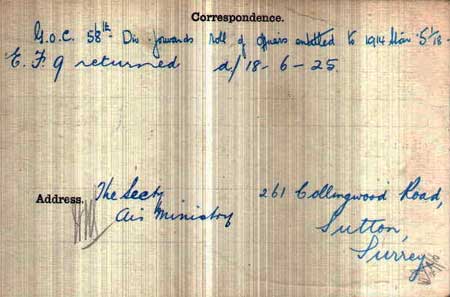 Correspondence.
G.O.C. 58th Div forwards Roll of Officers entitled to 1914 Star 5.1.18.
E. F 9 returned d/18-6-25.
Address. The Secty 261 Collingwood Road,
Air Ministry Sutton,
Surrey